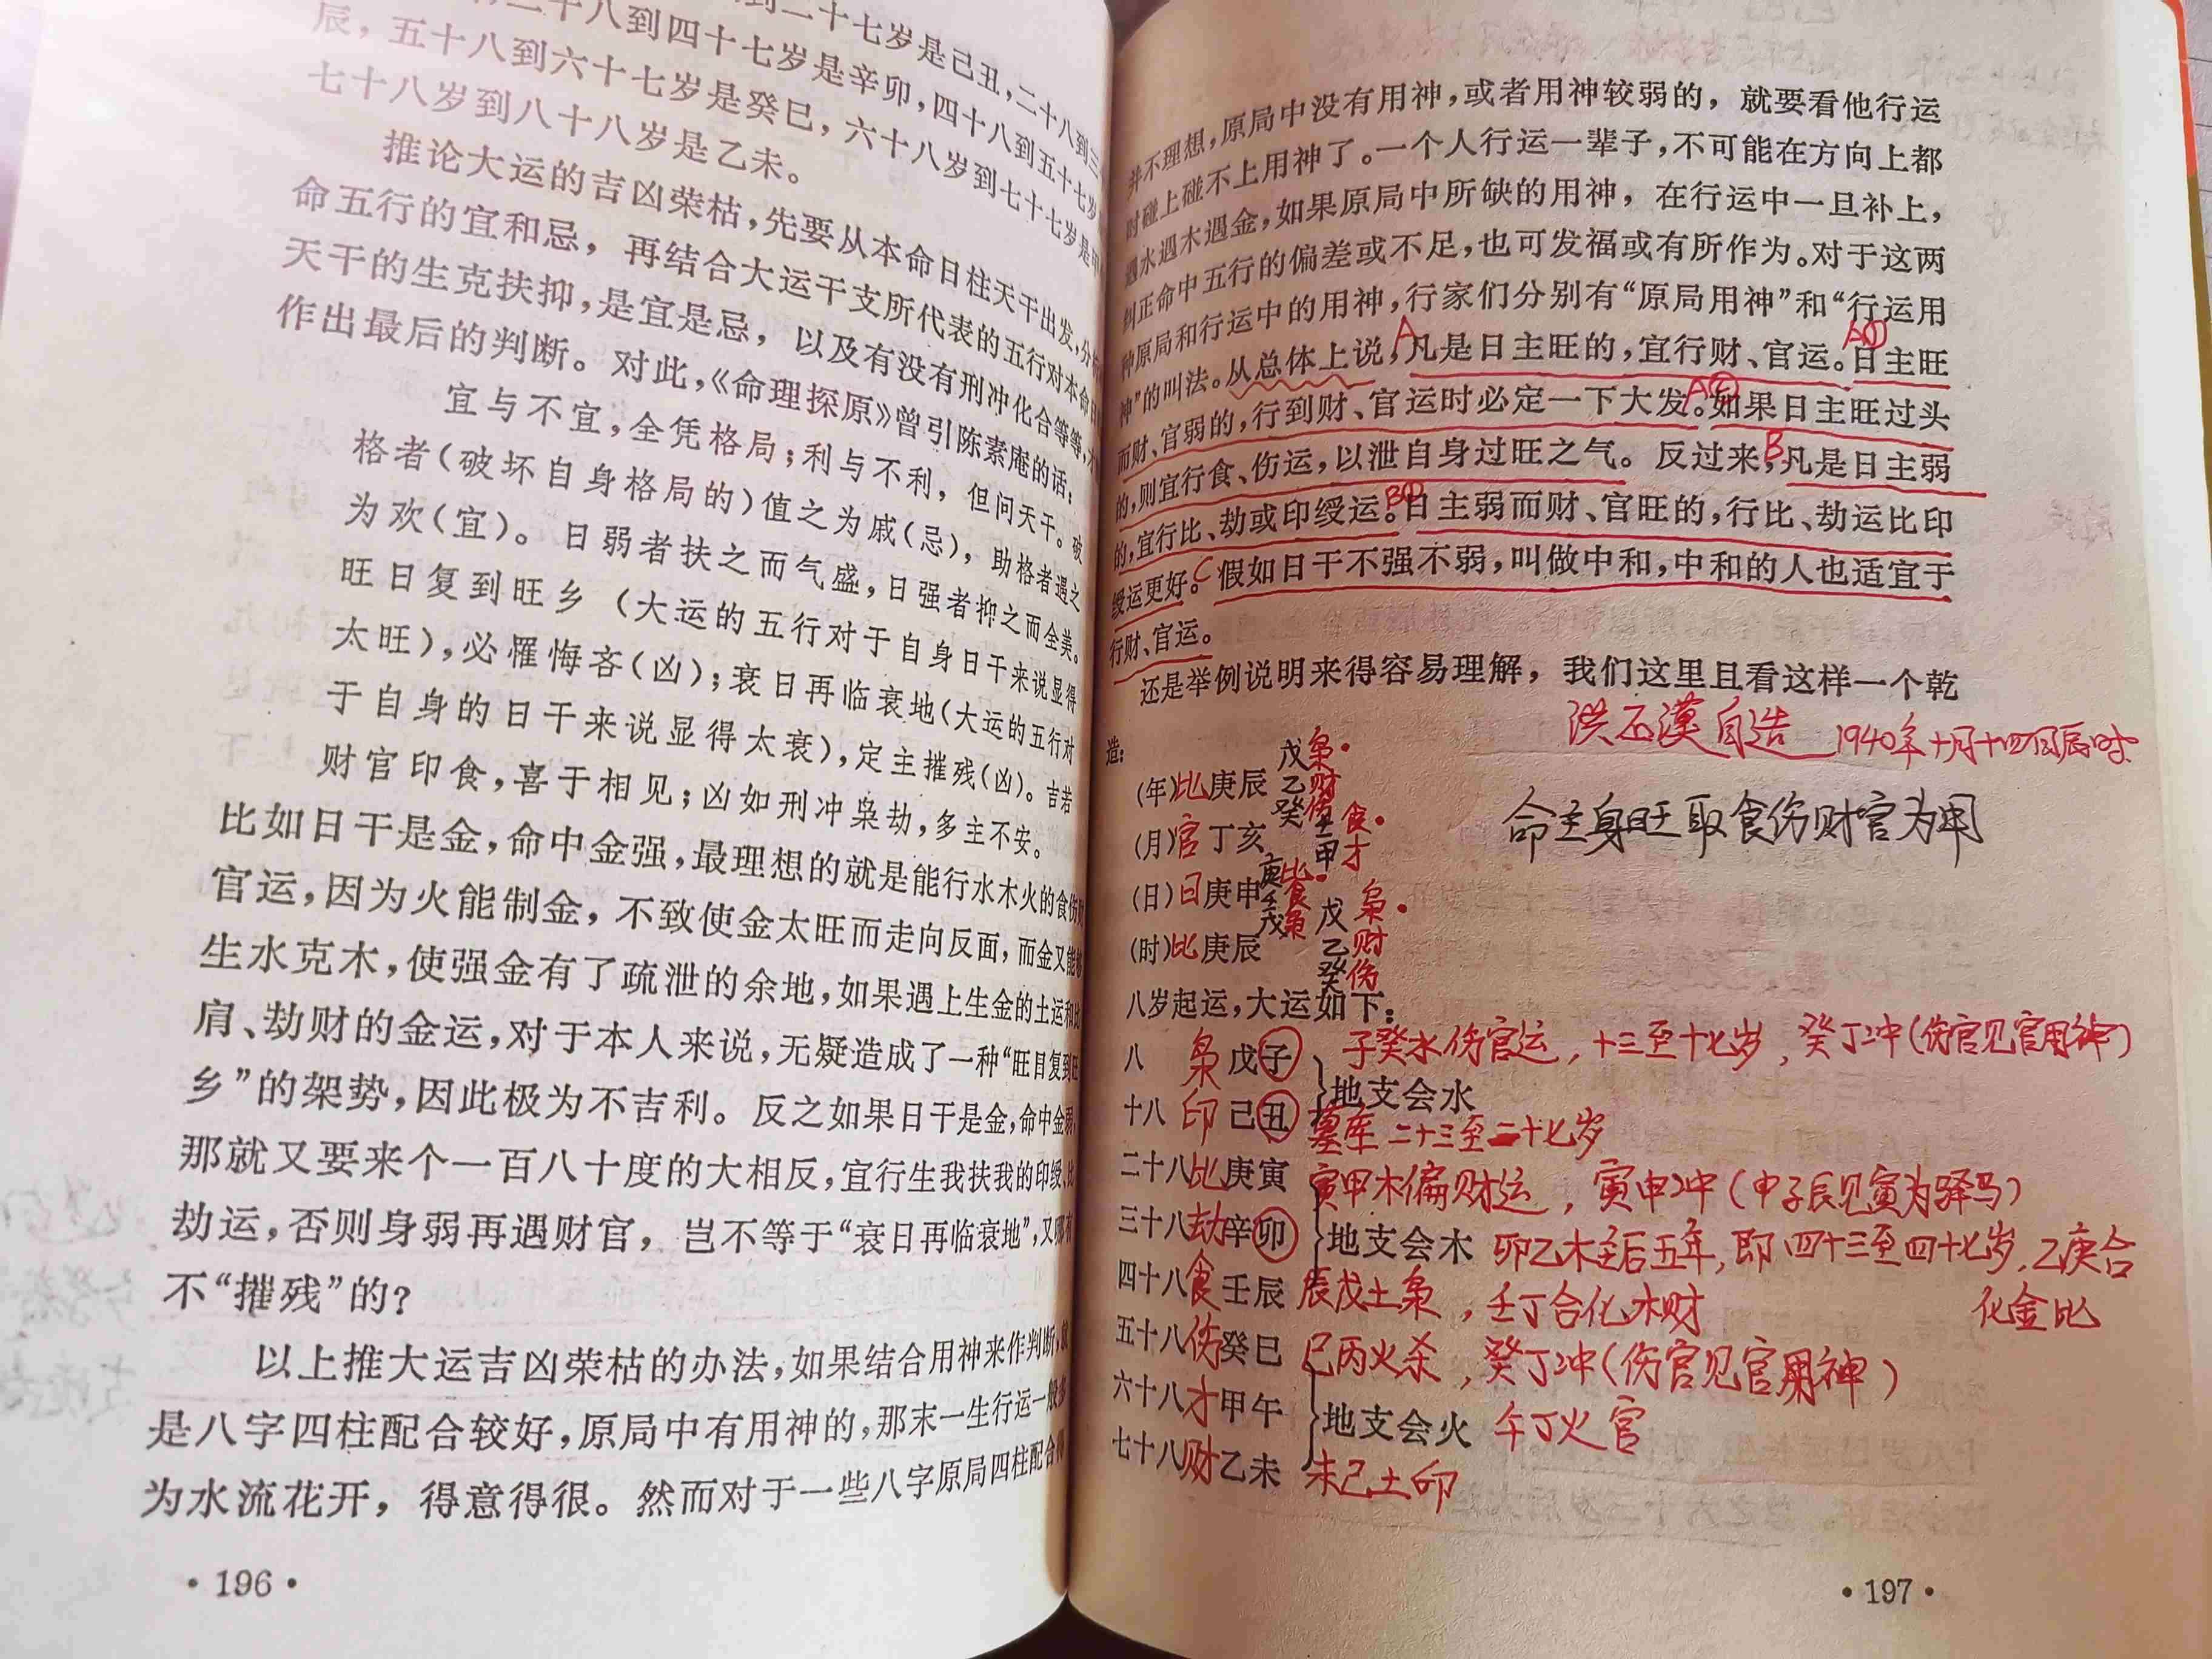 到二十七岁是己丑，二十八到三
二十八到四十七岁是辛卯，四十八到五十七岁
辰，五十八到六十七岁是癸巳，六十八岁到七十七岁是甲
七十八岁到八十八岁是乙未。
推论大运的吉凶荣枯，先要从本命日柱天干出发，分析
命五行的宜和忌，再结合大运干支所代表的五行对本命日
天干的生克扶抑，是宜是忌，以及有没有刑冲化合等等，
作出最后的判断。对此，《命理探原》曾引陈素庵的话：
宜与不宜，全凭格局；利与不利，但问天干。破
格者（破坏自身格局的）值之为戚（忌），助格者遇之
为欢（宜）。日弱者扶之而气盛，日强者抑之而全美。
旺日复到旺乡（大运的五行对于自身日干来说显得
太旺），必罹悔吝（凶）；衰日再临衰地（大运的五行对
于自身的日干来说显得太衰），定主摧残（凶）。吉若
财官印食，喜于相见；凶如刑冲枭劫，多主不安。
比如日干是金，命中金强，最理想的就是能行水木火的食伤财
官运，因为火能制金，不致使金太旺而走向反面，而金又能够
生水克木，使强金有了疏泄的余地，如果遇上生金的土运和比
肩、劫财的金运，对于本人来说，无疑造成了一种“旺日复到旺
乡”的架势，因此极为不吉利。反之如果日干是金，命中金弱，
那就又要来个一百八十度的大相反，宜行生我扶我的印绶、比
劫运，否则身弱再遇财官，岂不等于“衰日再临衰地”，又哪有
不“摧残”的？
以上推大运吉凶荣枯的办法，如果结合用神来作判断，
是八字四柱配合较好，原局中有用神的，那末一生行运一般多
为水流花开，得意得很。然而对于一些八字原局四柱配合得
·196·
并不理想，原局中没有用神，或者用神较弱的，就要看他行运
时碰上碰不上用神了。一个人行运一辈子，不可能在方向上都
遇水遇木遇金，如果原局中所缺的用神，在行运中一旦补上，
纠正命中五行的偏差或不足，也可发福或有所作为。对于这两
种原局和行运中的用神，行家们分别有“原局用神”和“行运用
神”的叫法。从总体上说，A凡是日主旺的，宜行财、官运。A①日主旺
而财、官弱的，行到财、官运时必定一下大发。A②如果日主旺过头
的，则宜行食、伤运，以泄自身过旺之气。反过来，B凡是日主弱
的，宜行比、劫或印绶运。B①日主弱而财、官旺的，行比、劫运比印
绶运更好。C假如日干不强不弱，叫做中和，中和的人也适宜于
行财、官运。
还是举例说明来得容易理解，我们这里且看这样一个乾
造：
洪丕漠自造 1940年十月十四日辰时
命主身旺取食伤财官为用
(年)比庚辰 戊枭 乙财 癸伤
(月)官丁亥 壬食 甲才
(日)日庚申 庚比 壬食 戊枭
(时)比庚辰 戊枭 乙财 癸伤
八岁起运，大运如下：
八 枭戊子 子癸水伤官运，十三至十七岁，癸丁冲（伤官见官用神）
地支会水
十八 印己丑 墓库 二十三至二十七岁
二十八比庚寅 寅甲木偏财运，寅申冲（申子辰见寅为驿马）
三十八劫辛卯 地支会木 卯乙木主后五年，即四十三至四十七岁，乙庚合
化金比
四十八食壬辰 辰戊土枭，壬丁合化木财
五十八伤癸巳 巳丙火杀，癸丁冲（伤官见官用神）
六十八才甲午 地支会火 午丁火官
七十八财乙未 未己土印
·197·